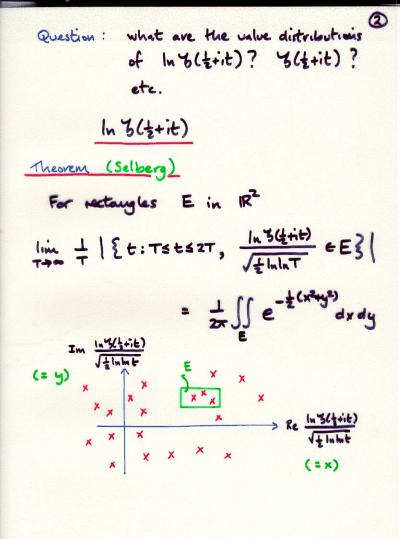 ②
Question: what are the value distributions
of ln ζ(½+it)? ζ(½+it)?
etc.
ln ζ(½+it)
Theorem (Selberg)
For rectangles E in ℝ²
lim T→∞ 1/T |{t: T≤t≤2T, ln ζ(½+it)/√(½ ln ln T) ∈ E}|
= 1/2π ∬_E e^{-½(x²+y²)} dx dy
Im ln ζ(½+it)/√(½ ln ln t)
(= y)
E
Re ln ζ(½+it)/√(½ ln ln t)
(= x)